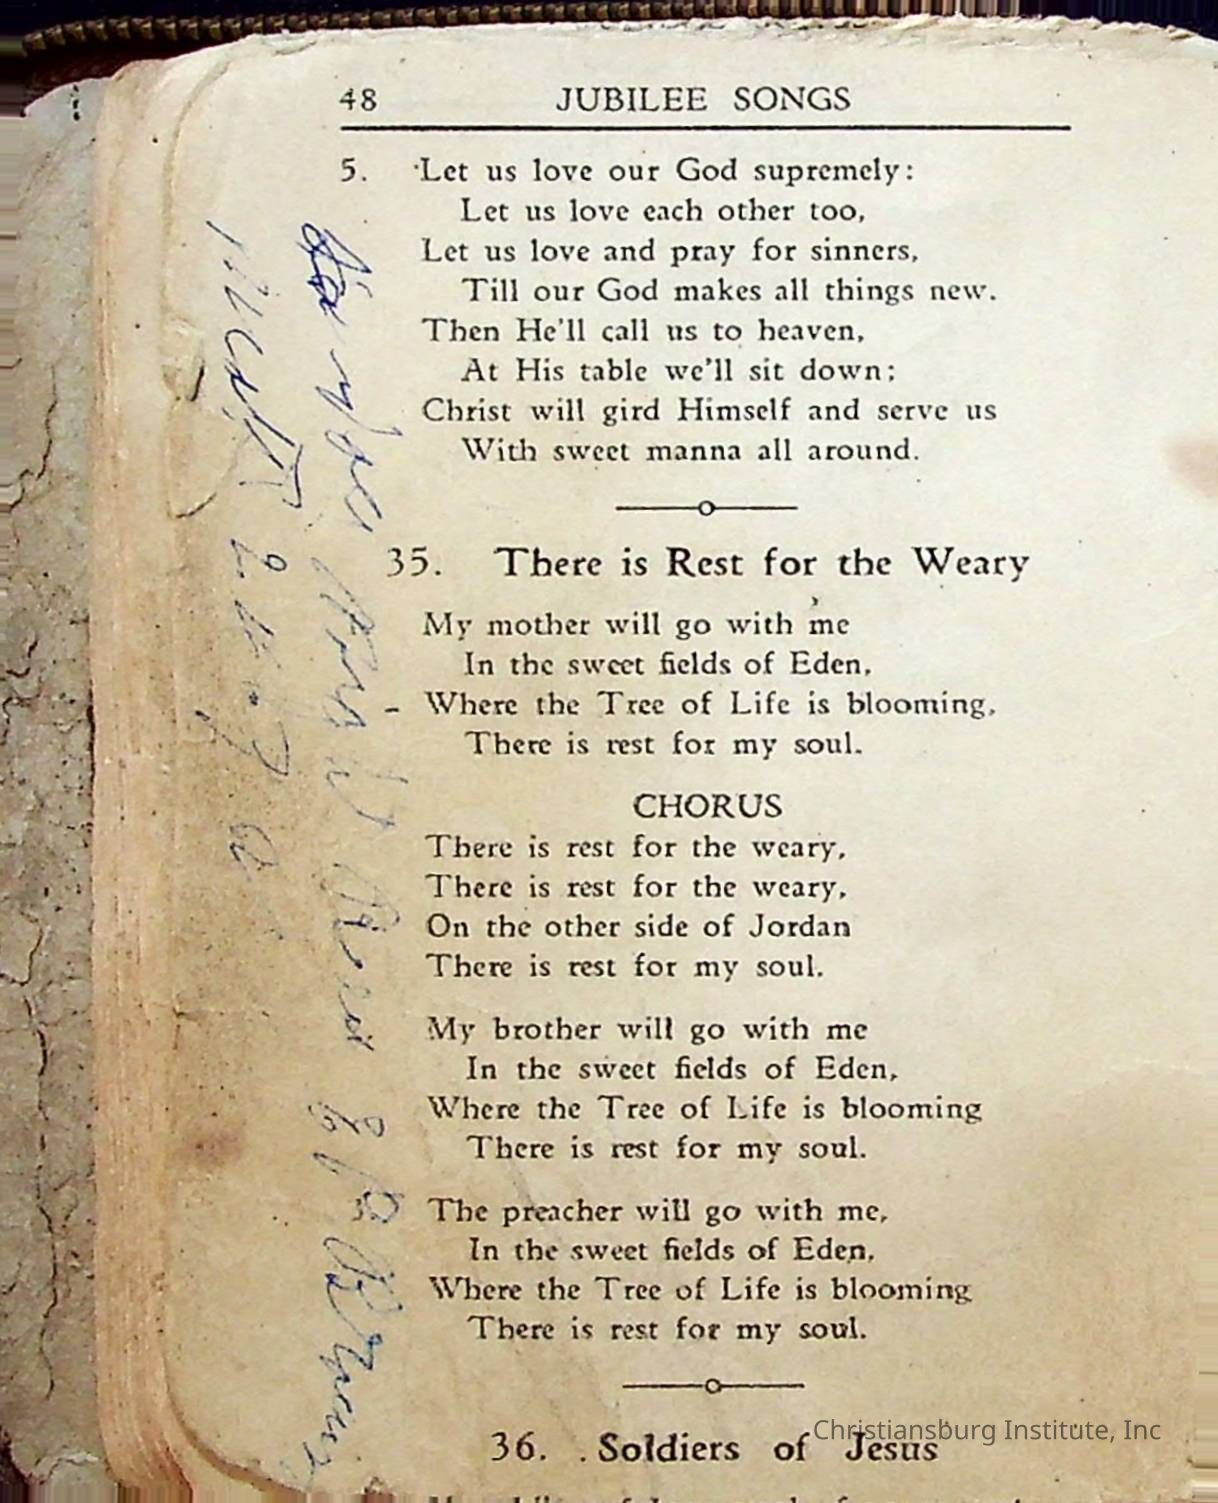 48 JUBILEE SONGS
5. Let us love our God supremely:
Let us love each other too,
Let us love and pray for sinners,
Till our God makes all things new.
Then He'll call us to heaven,
At His table we'll sit down;
Christ will gird Himself and serve us
With sweet manna all around.
35. There is Rest for the Weary
My mother will go with me
In the sweet fields of Eden,
Where the Tree of Life is blooming,
There is rest for my soul.
CHORUS
There is rest for the weary,
There is rest for the weary,
On the other side of Jordan
There is rest for my soul.
My brother will go with me
In the sweet fields of Eden,
Where the Tree of Life is blooming
There is rest for my soul.
The preacher will go with me,
In the sweet fields of Eden,
Where the Tree of Life is blooming
There is rest for my soul.
36. Soldiers of Jesus
Christiansburg Institute, Inc